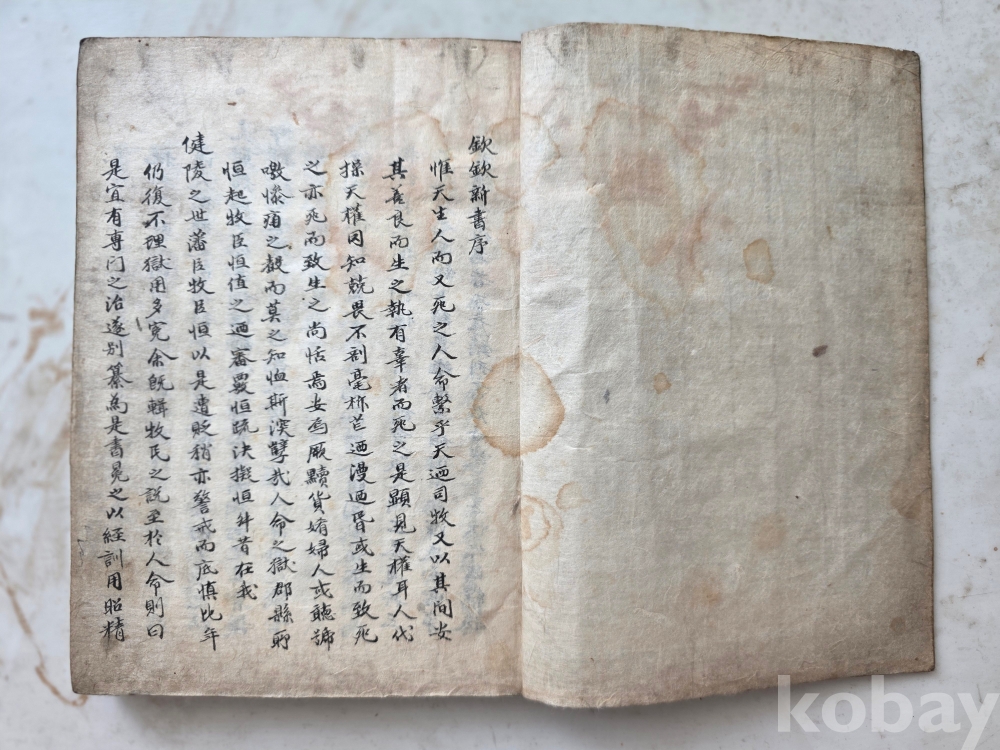 欽欽新書序
惟天生人而又死之人命繫乎天迺司牧又以其間安
其善良而生之執有辜者而死之是顯見天權耳人代
操天權罔知兢畏不剖毫析芒迺漫迺昏或生而致死
之亦死而致生之尚恬焉安焉厥黷貨媚婦人或聽號
噭慘痛之聲而莫之知恤斯深孽哉人命之獄郡縣所
恒起牧臣恒值之迺審覈恒疏決擬恒舛昔在我
健陵之世藩臣牧臣恒以是遭貶稍亦警戒而底慎比年
仍復不理獄用多冤余旣輯牧民之說至於人命則曰
是宜有專門之治遂別纂爲是書冕之以經訓用昭精
kobay